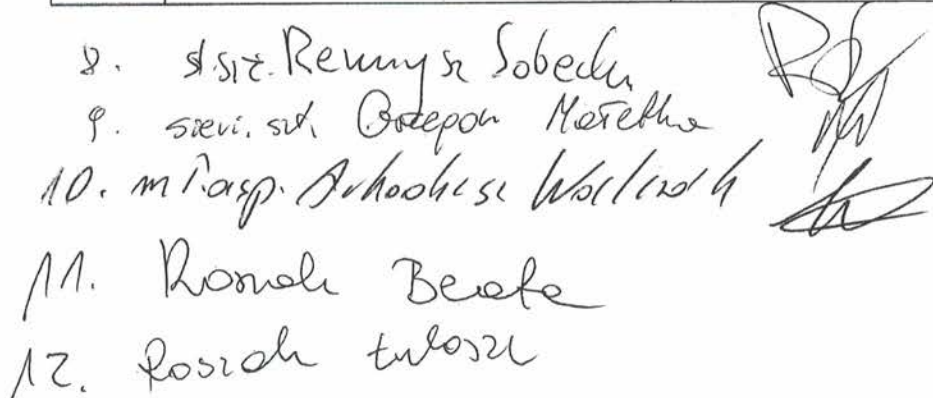 8. st.sierż. Remigiusz Sobecki
9. sierż. szt. Grzegorz Małetka
10. mł.asp. Arkadiusz Walczak
11. Rosiak Beata
12. Roszak Łukasz